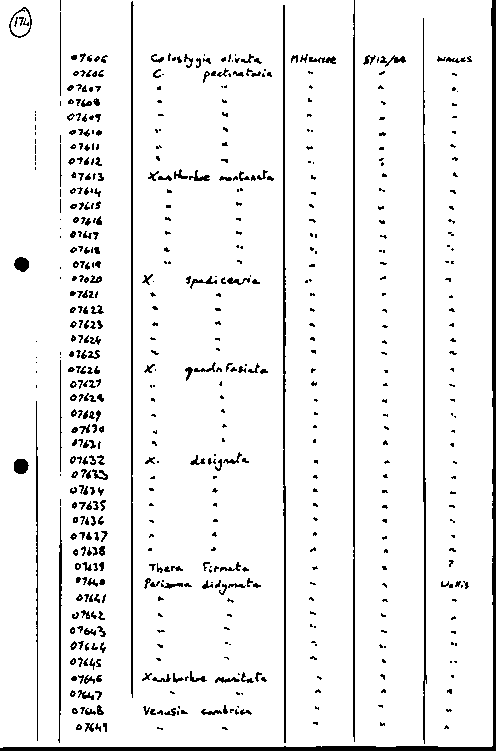 174
07605 Colostygia olivata M Hxxxxx 5/12/84 WALLIS
07606 C. pectinataria " " "
07607 " " " " "
07608 " " " " "
07609 " " " " "
07610 " " " " "
07611 " " " " "
07612 " " " " "
07613 Xanthorhoe montanata " " "
07614 " " " " "
07615 " " " " "
07616 " " " " "
07617 " " " " "
07618 " " " " "
07619 " " " " "
07020 X. spadicearia " " "
07621 " " " " "
07622 " " " " "
07623 " " " " "
07624 " " " " "
07625 " " " " "
07626 X. quadrifasiata " " "
07627 " " " " "
07628 " " " " "
07629 " " " " "
07630 " " " " "
07631 " " " " "
07632 X. designata " " "
07633 " " " " "
07634 " " " " "
07635 " " " " "
07636 " " " " "
07637 " " " " "
07638 " " " " "
07639 Thera Firmata " " ?
07640 Perizoma didymata " " Wallis
07641 " " " " "
07642 " " " " "
07643 " " " " "
07644 " " " " "
07645 " " " " "
07646 Xanthorhoe munitata " " "
07647 " " " " "
07648 Venusia cambrica " " "
07649 " " " " "